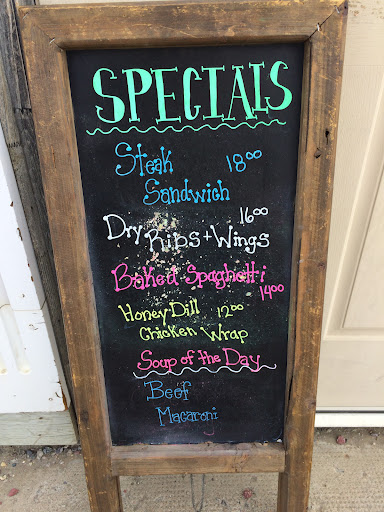 SPECIALS
Steak 18⁰⁰
Sandwich
Dry Ribs + Wings 16⁰⁰
Baked Spaghetti 14⁰⁰
Honey-Dill 12⁰⁰
Chicken Wrap
Soup of the Day
Beef
Macaroni